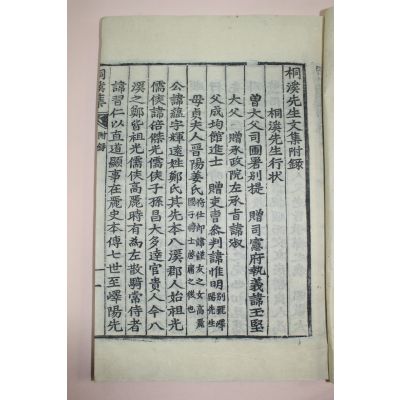 桐溪先生文集附錄
桐溪先生行狀
曾大父司圃署別提 贈司憲府執義諱玉堅
大父 贈承政院左承旨諱淑
父成均館進士 贈吏曹參判諱惟明 別號嶧陽先生
母貞夫人晉陽姜氏 將仕郎諱謹友之女高麗國子博士啓庸之後也
公諱蘊字輝遠姓鄭氏其先本八溪郡人始祖光
儒俠諱倍傑光儒俠子孫昌大多達官貴人今八
溪之鄭皆祖光儒俠高麗時有爲左散騎常侍者
諱習仁以直道顯事在麗史本傳七世至嶧陽先
桐溪集 附錄 一